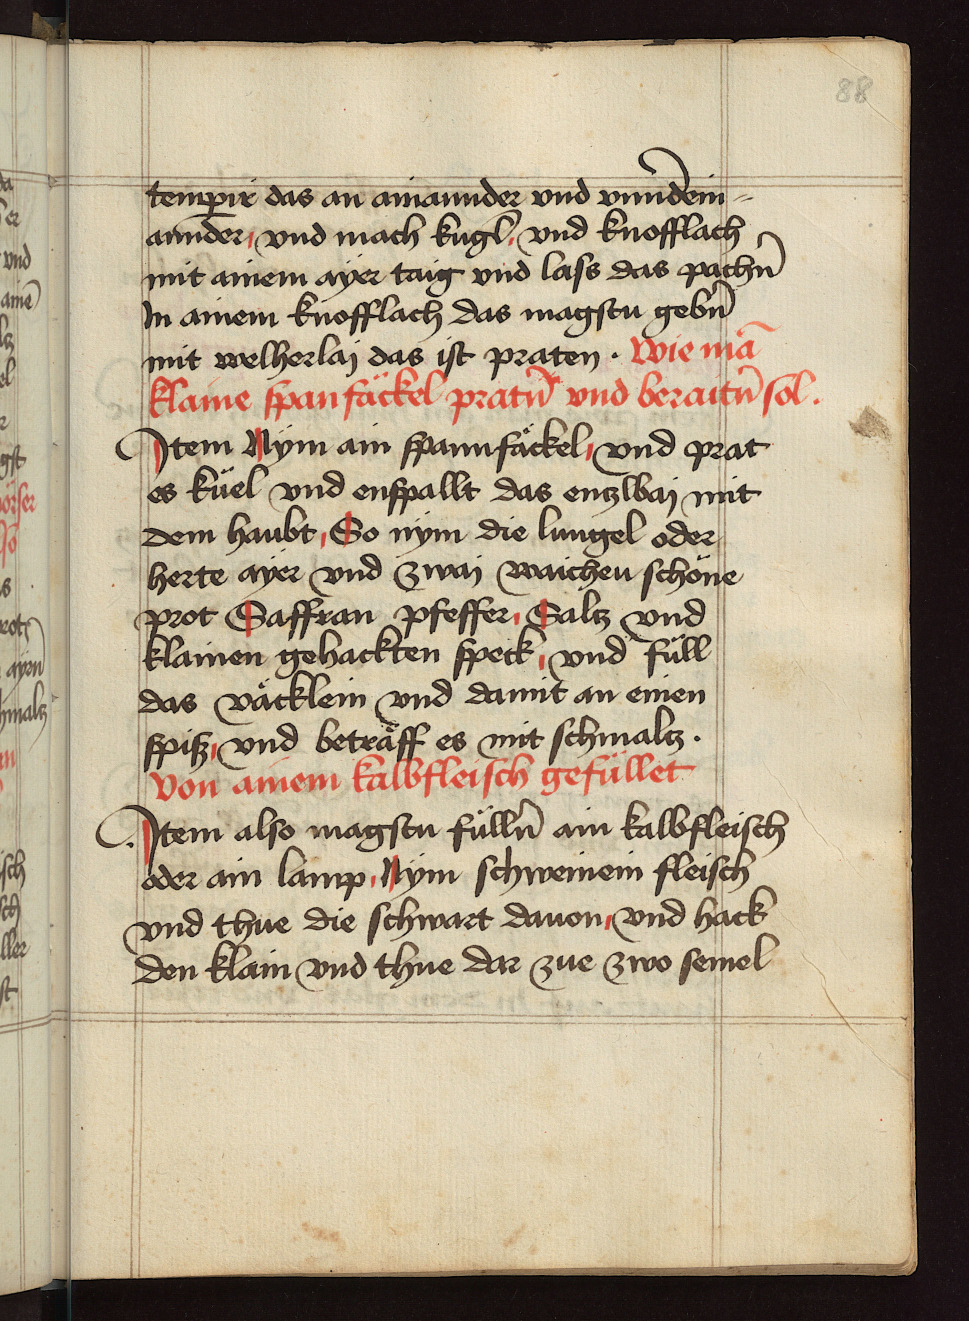 88
tempir das an ainannder vnd vnndein=
annder, vnd mach kugl, vnd knofflach
mit ainem ayer taig vnd lass das pachn̄
In ainem knofflach das magstu gebn̄
mit welherlaj das ist praten · Wie mā
klaine spanfäckel pratn̄ vnd beraitn̄ sol.
Item Nym ain spannfäckel, vnd prat
es küel vnd enspallt das entzlbaj mit
dem haubt, So nÿm die lungel oder
herte aÿer vnd zwaj waichen schöne
prot Saffran pfeffer, Saltz vnd
klainen gehackten speck, vnd füll
das väcklein vnd damit an einen
spisz, vnd beträff es mit schmaltz .
Von ainem kalbfleisch gefüllet
Item also magstu fülln̄ ain kalbfleisch
oder ain lamp, Nÿm schweinein fleisch
vnd thue die schwart dauon, vnd hack
den klain vnd thue dar zue zwo semel